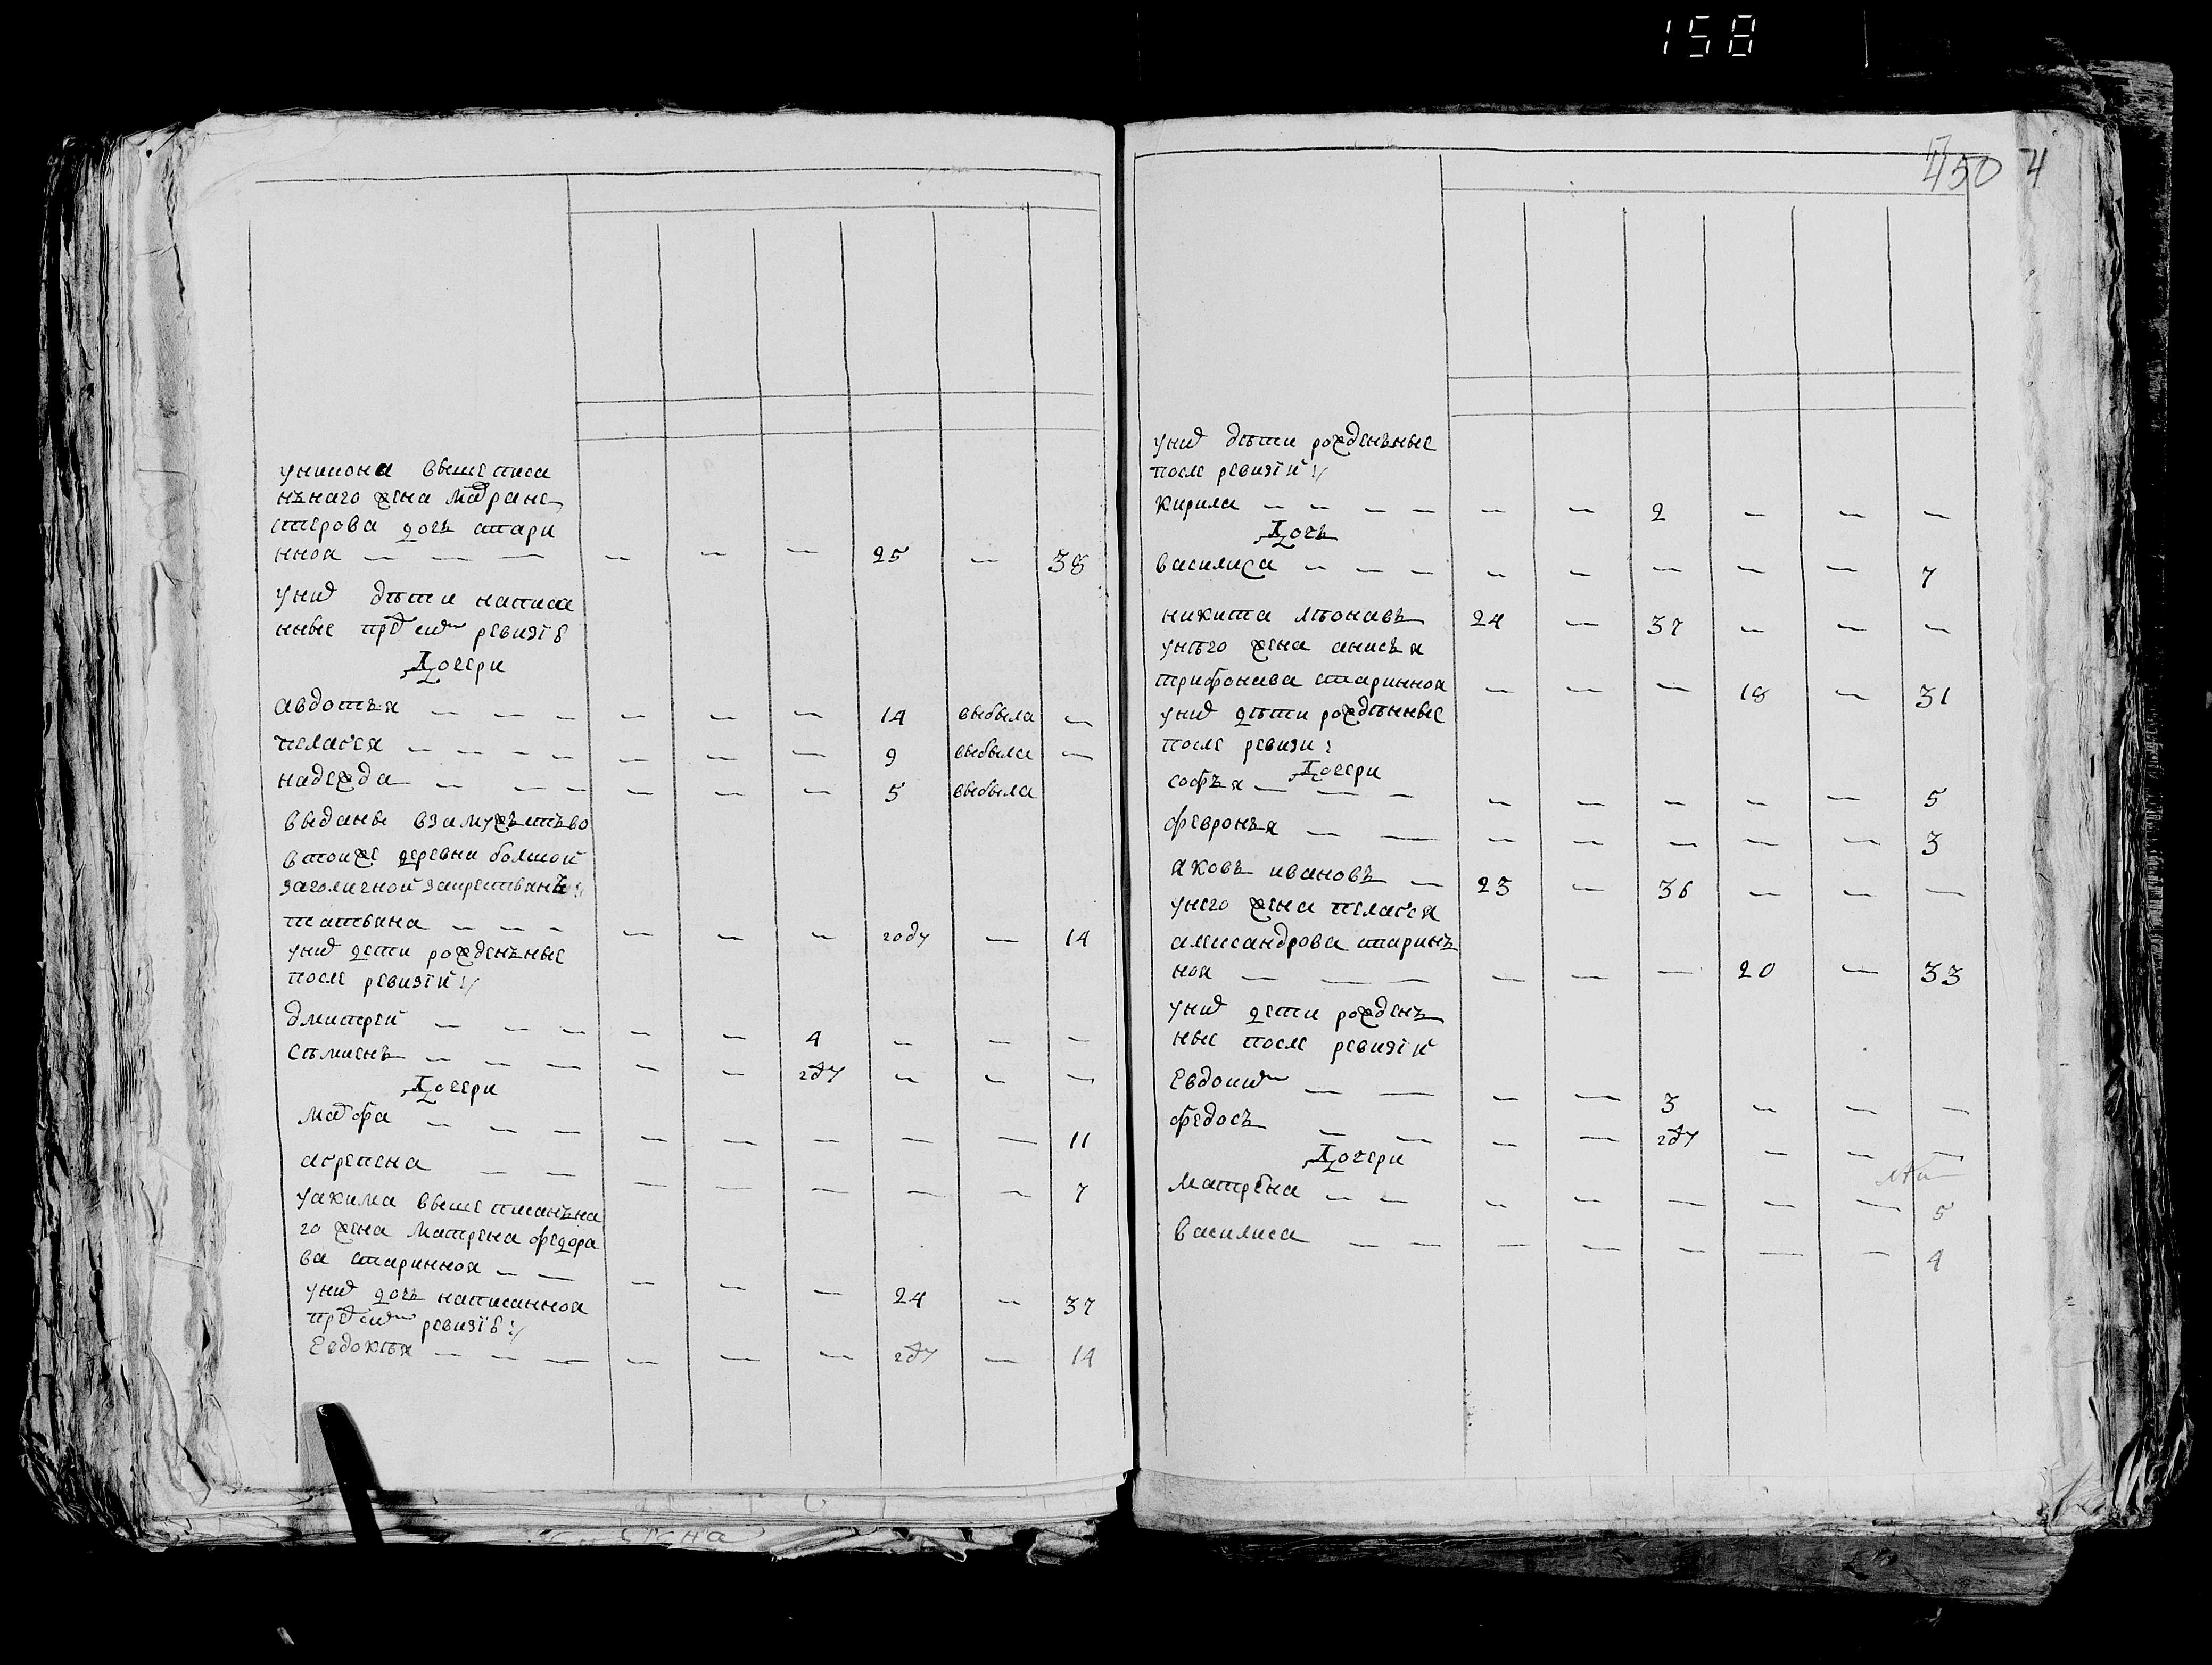 158
450 4
вышеписа
нънаго жена
дочь стари
нноя — — — — — — 25 — 38
унихъ дѣти написа
нные ревизіе
Дочери
авдотья — — — — — — 14 выбыла —
пелагея — — — — — — — 9 выбыла —
надежда — — — — — — 5 выбыла
выданы взамужъство
втойже деревни болшой
татьяна — — — — — — году — 14
унихъ дети рожденъные
после ревизіи :/
дмитрей — — — — — 4 — — —
сѣмионъ — — — — — году — — —
Дочери
марфа — — — — — — — — 11
агрепена — — — — — — — 7
уакима вышеписанъна
го жена матрена федора
ва стариноя — — — — — 24 — 37
унихъ дочь написанноя
ревизіе :/
Евдокѣя — — — — — — году — 14
унихъ дѣти рожденъные
после ревизіи :/
кирила — — — — — — 2 — — —
Дочь
василиса — — — — — — — — 7
никита 24 — 37 — — —
унѣго жена анисья
трифонава стариноя — — — 18 — 31
унихъ дѣти рождѣнные
после ревизи :
Дочери
софья — — — — — — — — 5
февронья — — — — — — — 3
яковъ ивановъ — 23 — 36 — — —
унего жена пелагея
александрова старинъ
ноя — — — — — — 20 — 33
унихъ дети рожденъ
ные после ревизіи
Евдокимъ — — — — 3 — — —
федосъ — — — — году — — —
Дочери
матрена — — — — — — — 5
василиса — — — — — — — 4